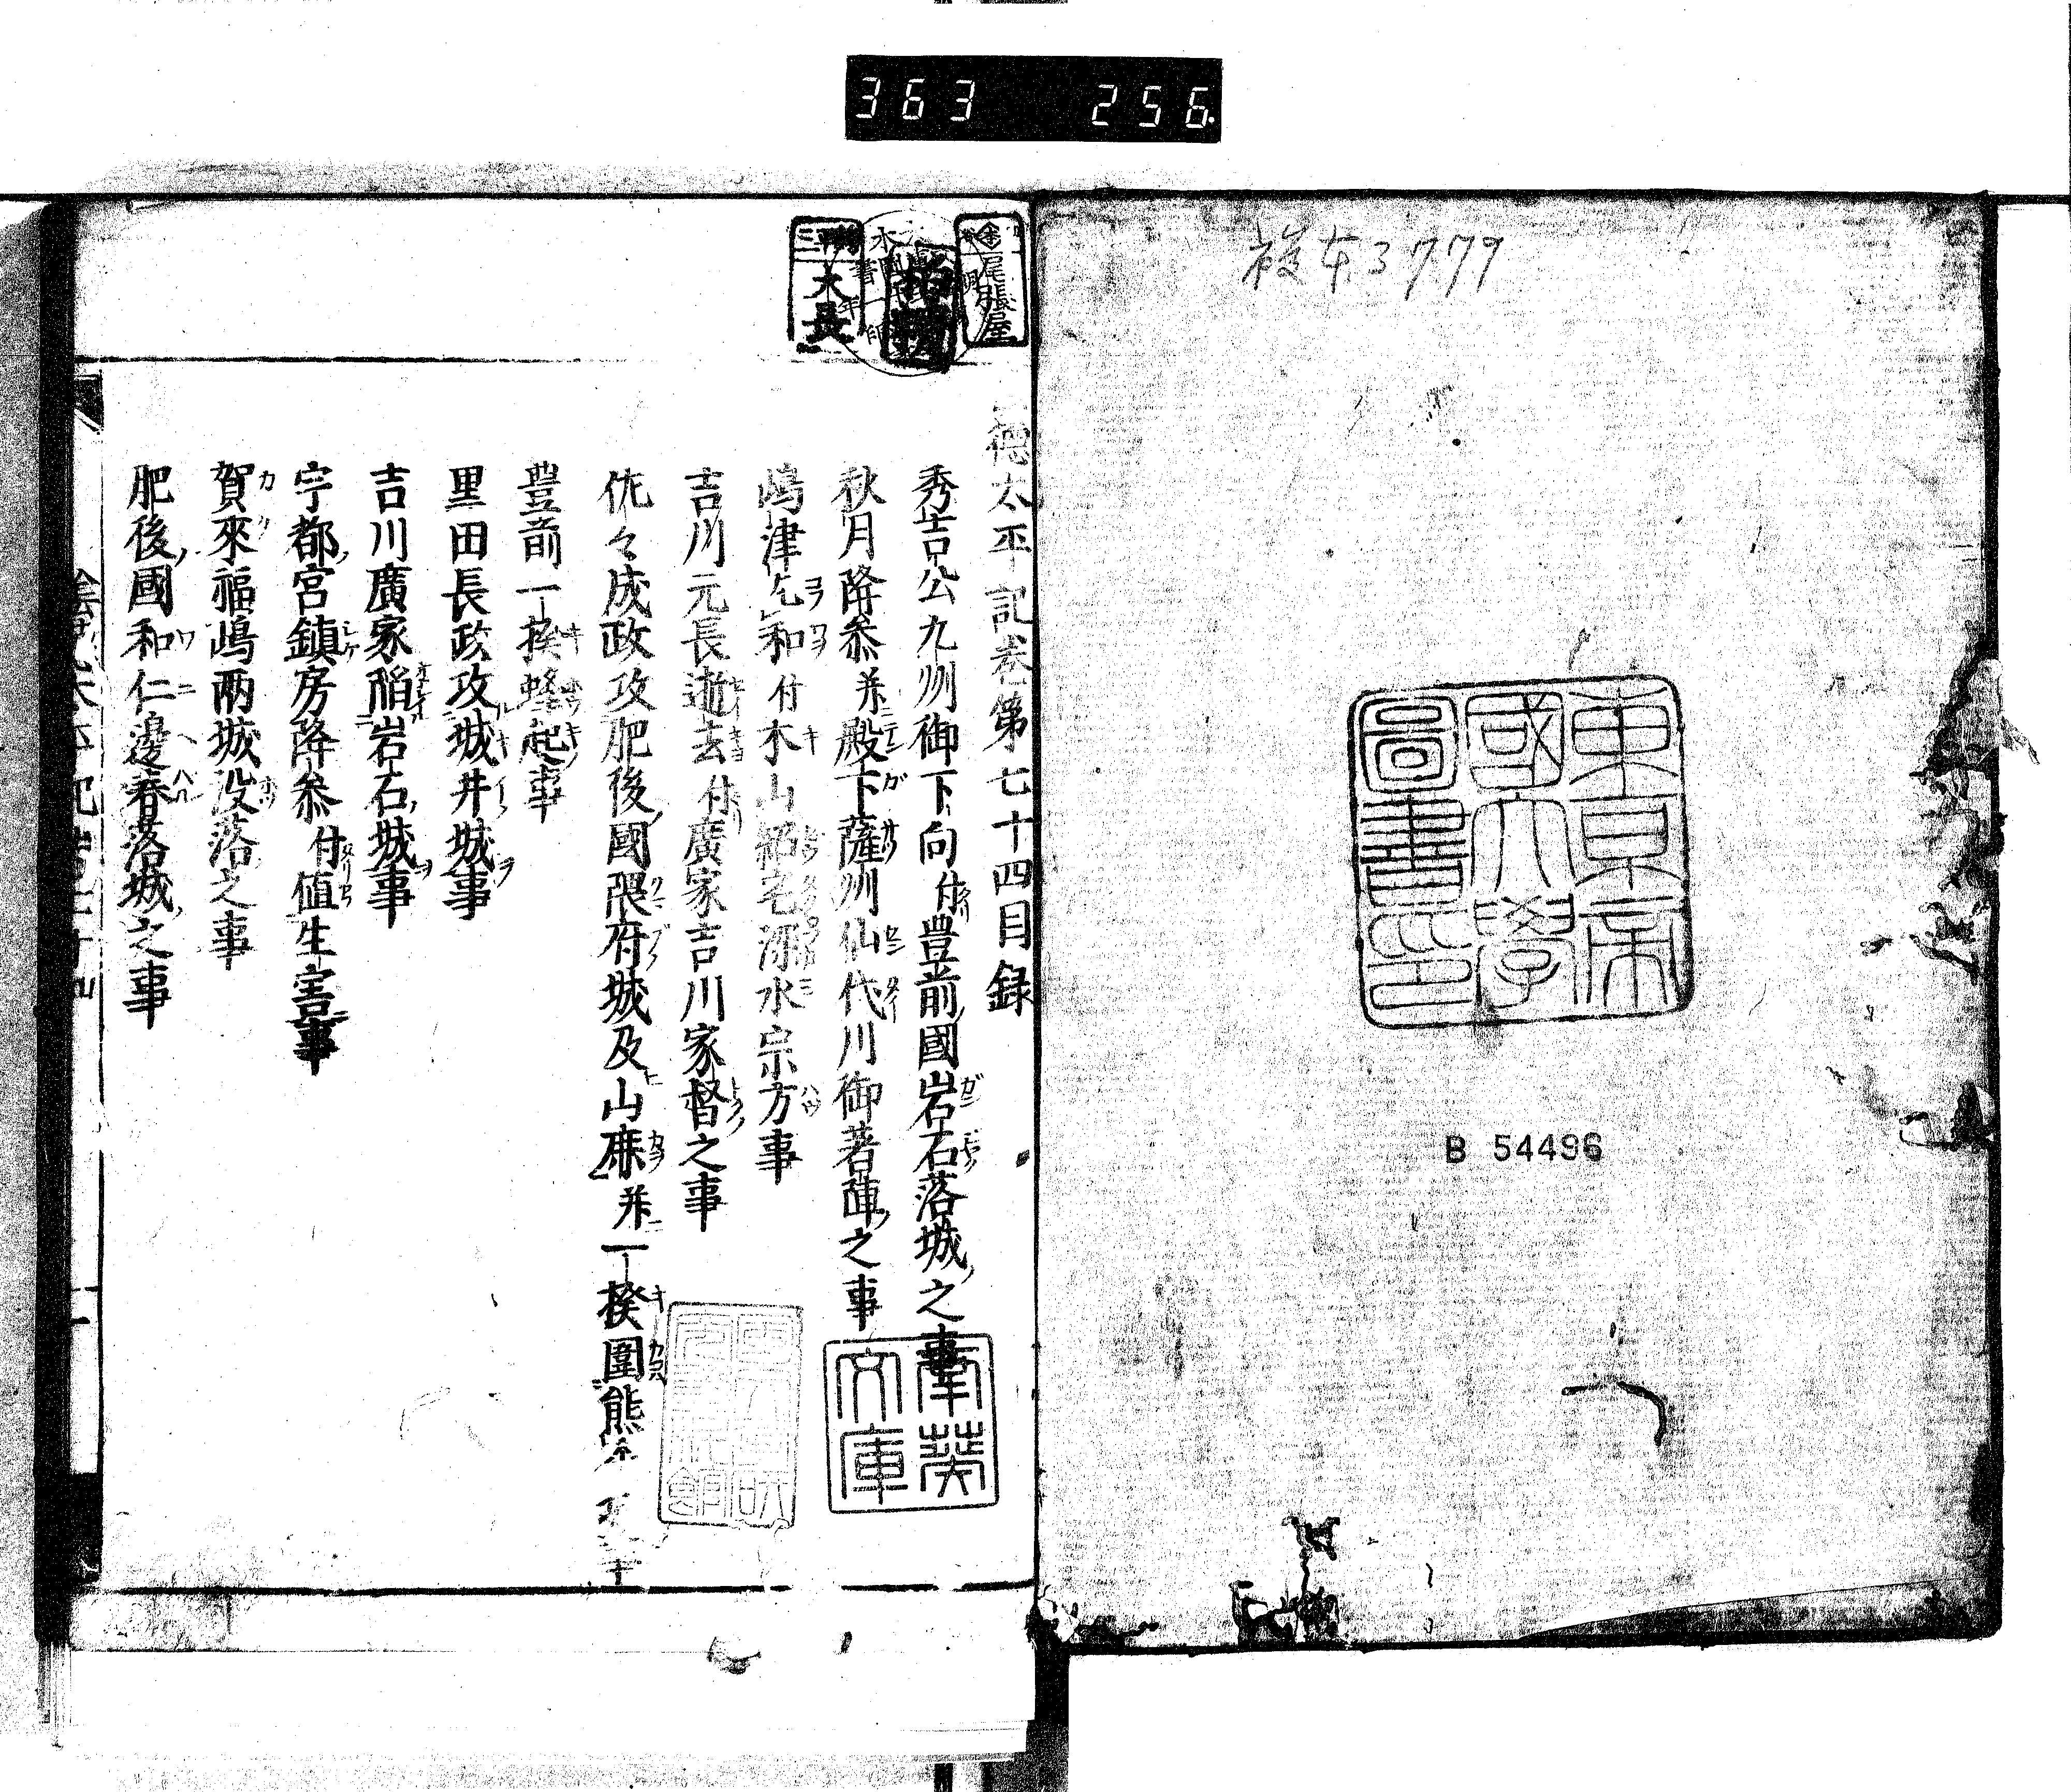 363 256
複本3779
東京帝
國大學
圖書印
B 54496
尾張屋
大長
德太平記卷第七十四目録
秀吉公九州御下向付豊前國岩石落城之事
秋月降参并殿下薩州仙代川御著陣之事
嶋津乞和付木山紹宅溺水宗方事
吉川元長逝去付廣家吉川家督之事
佐々成政攻肥後國隈府城及山鹿并一揆圍熊
豊前一揆蜂起事
黒田長政攻城井城事
吉川廣家陷岩石城事
宇都宮鎮房降参付値生害事
賀來福嶋兩城没落之事
肥後國和仁邊春落城之事
南葵
文庫